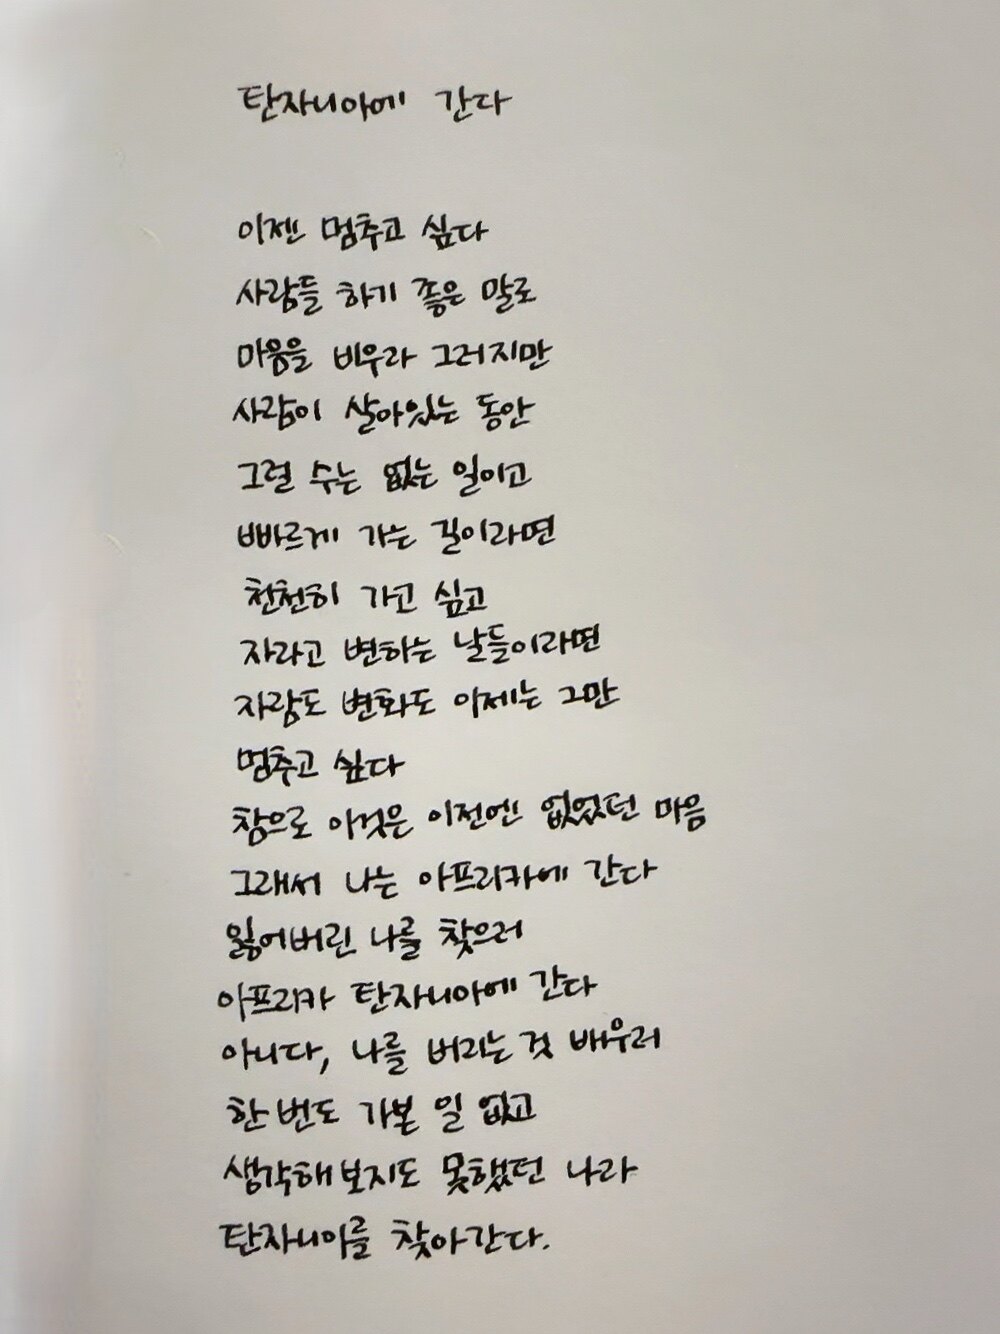 탄자니아에 간다
이젠 멈추고 싶다
사람들 하기 좋은 말로
마음을 비우라 그러지만
사람이 살아있는 동안
그럴 수는 없는 일이고
빠르게 가는 길이라면
천천히 가고 싶고
자라고 변하는 날들이라면
자람도 변화도 이제는 그만
멈추고 싶다
참으로 이것은 이전엔 없었던 마음
그래서 나는 아프리카에 간다
잃어버린 나를 찾으러
아프리카 탄자니아에 간다
아니다, 나를 버리는 것 배우러
한 번도 가본 일 없고
생각해보지도 못했던 나라
탄자니아를 찾아간다.